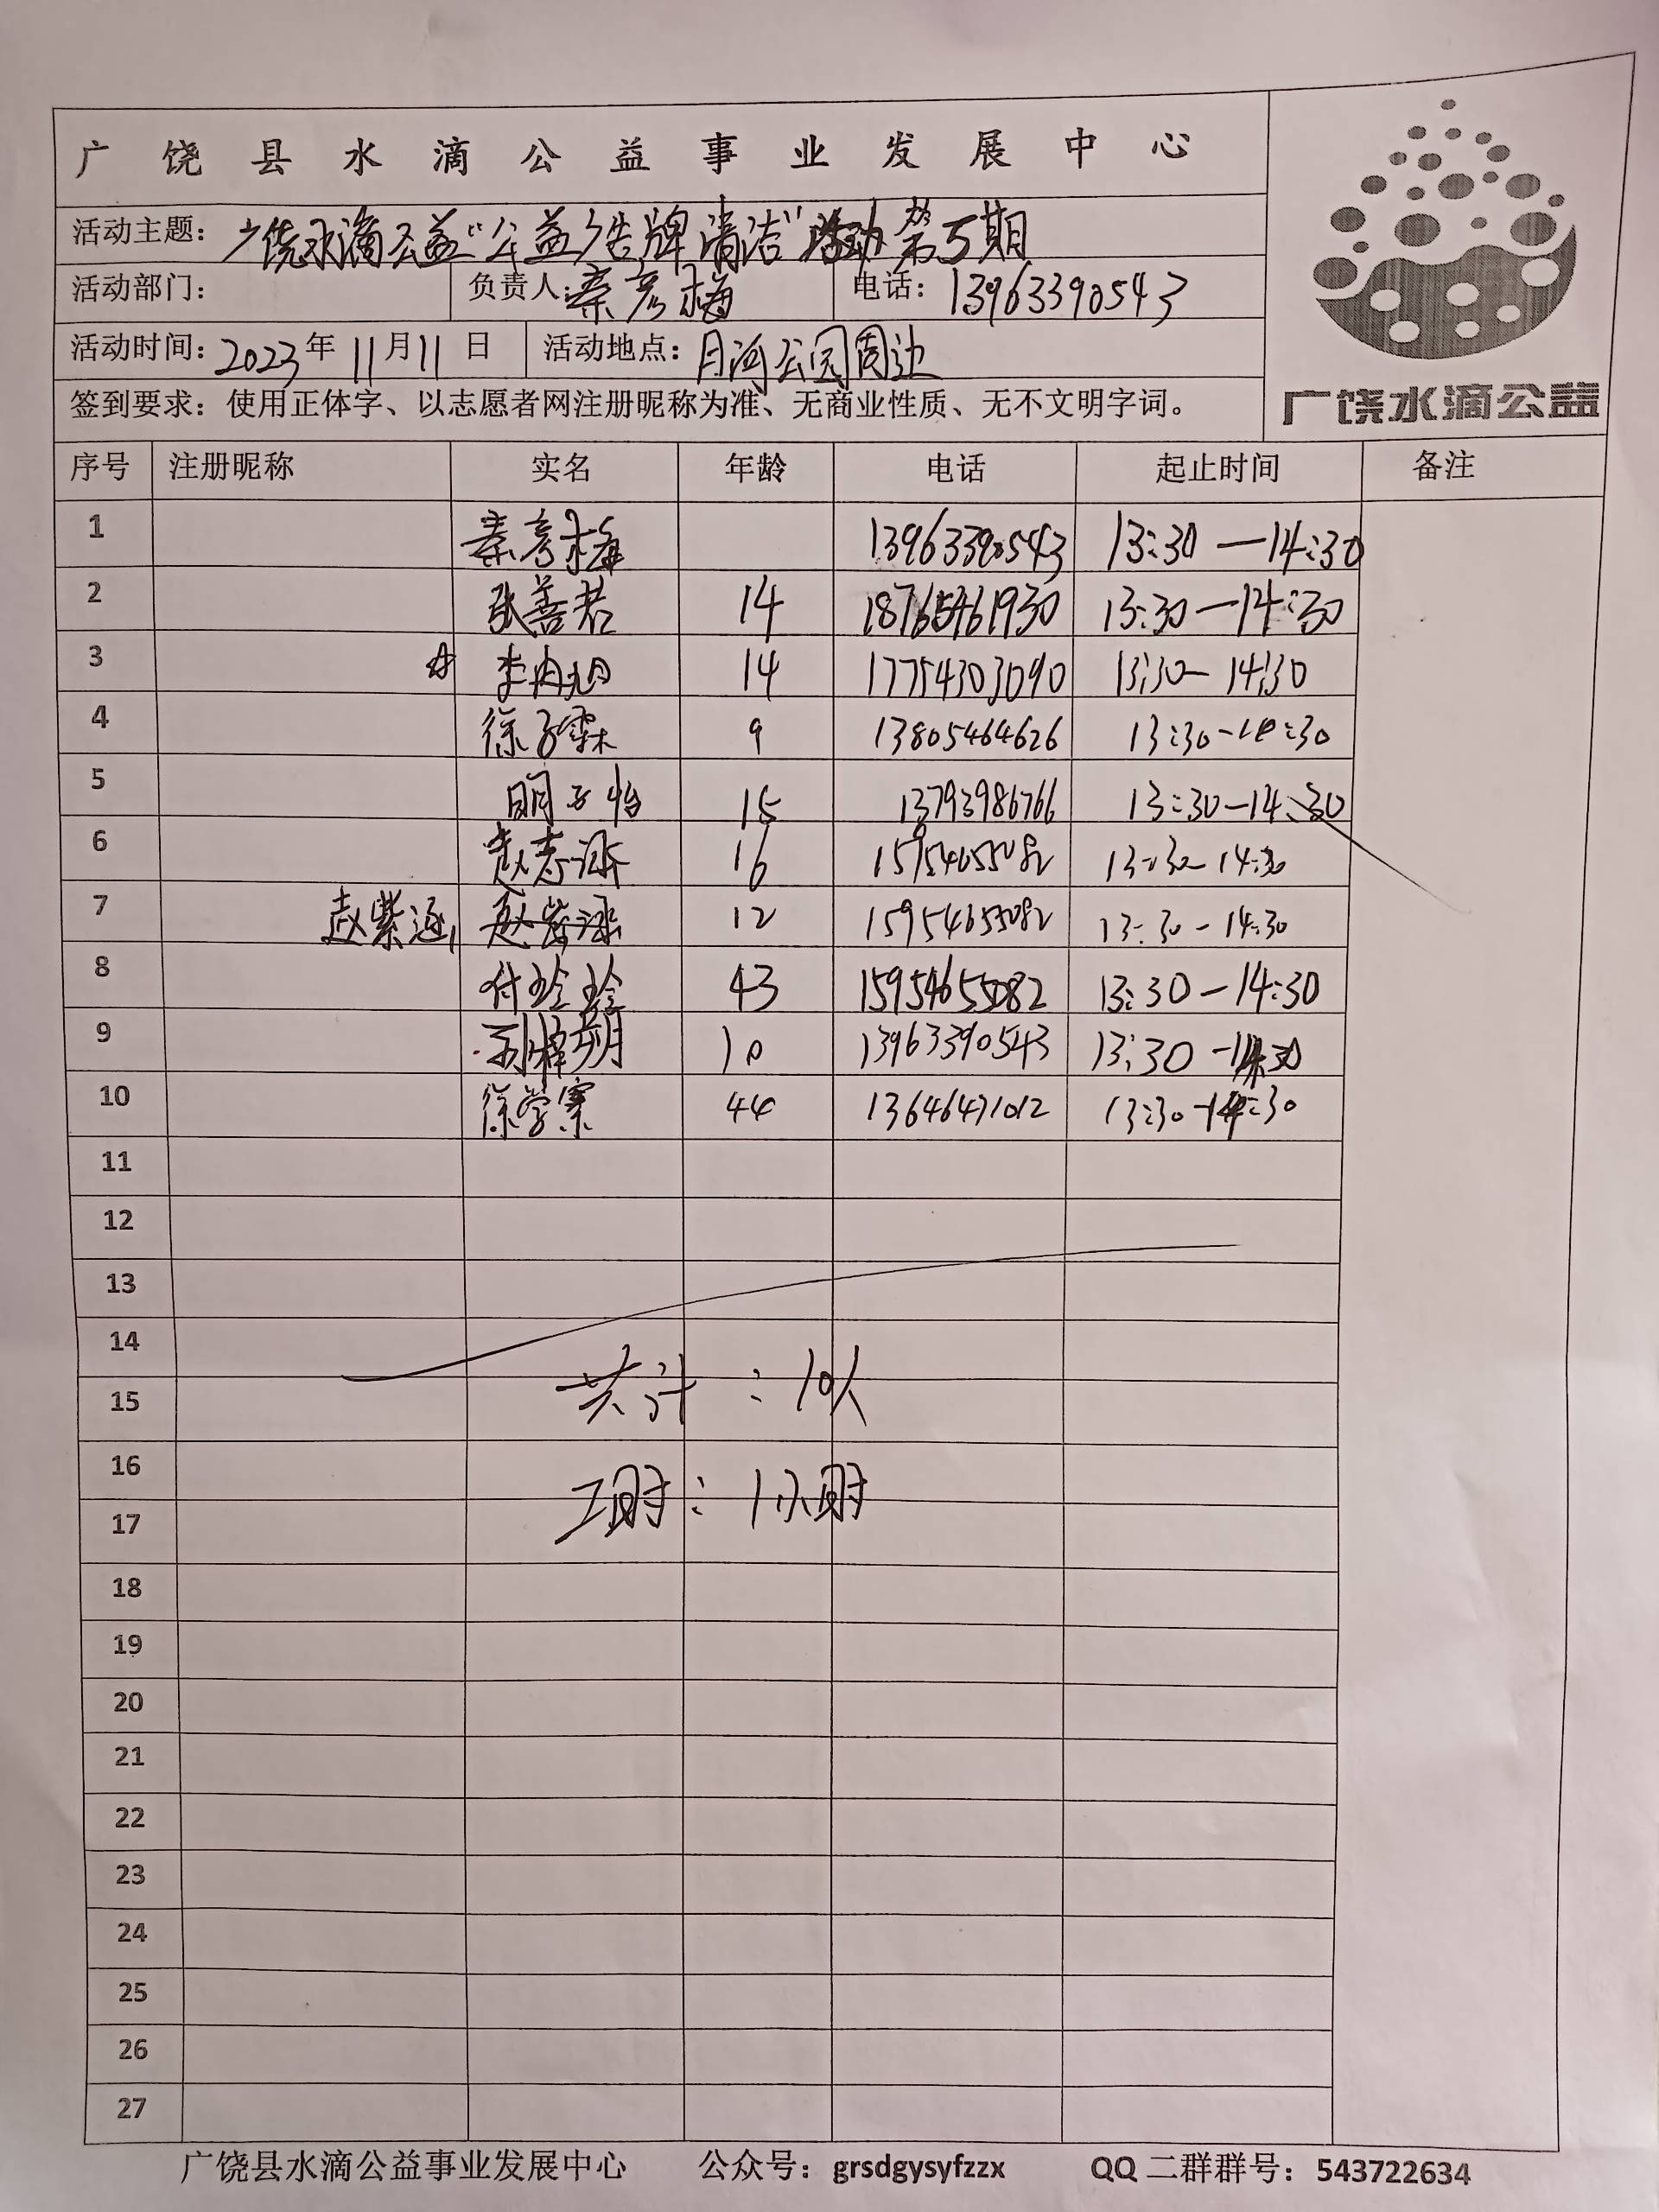 广饶县水滴公益事业发展中心
活动主题：广饶水滴公益“公益广告牌清洁”活动第5期
活动部门： 负责人：秦彦梅 电话：13963390543
活动时间：2023年11月11日 活动地点：月河公园周边
签到要求：使用正体字、以志愿者网注册昵称为准、无商业性质、无不文明字词。
广饶水滴公益
序号 注册昵称 实名 年龄 电话 起止时间 备注
1 秦彦梅 13963390543 13:30—14:30
2 张善若 14 18765461930 13:30—14:30
3 李冉旭 14 17754303090 13:30—14:30
4 徐子霖 9 13805464626 13:30-14:30
5 明子怡 15 13793986766 13:30—14:30
6 赵志涵 16 15954655082 13:30—14:30
7 赵紫涵 赵紫涵 12 15954655082 13:30-14:30
8 付玲玲 43 15954655082 13:30—14:30
9 10 13963390543 13:30-14:30
10 徐学寨 44 13646471012 13:30-14:30
11
12
13
14
共计：10人
15
16
工时：1小时
17
18
19
20
21
22
23
24
25
26
27
广饶县水滴公益事业发展中心 公众号：grsdgysyfzzx QQ二群群号：543722634